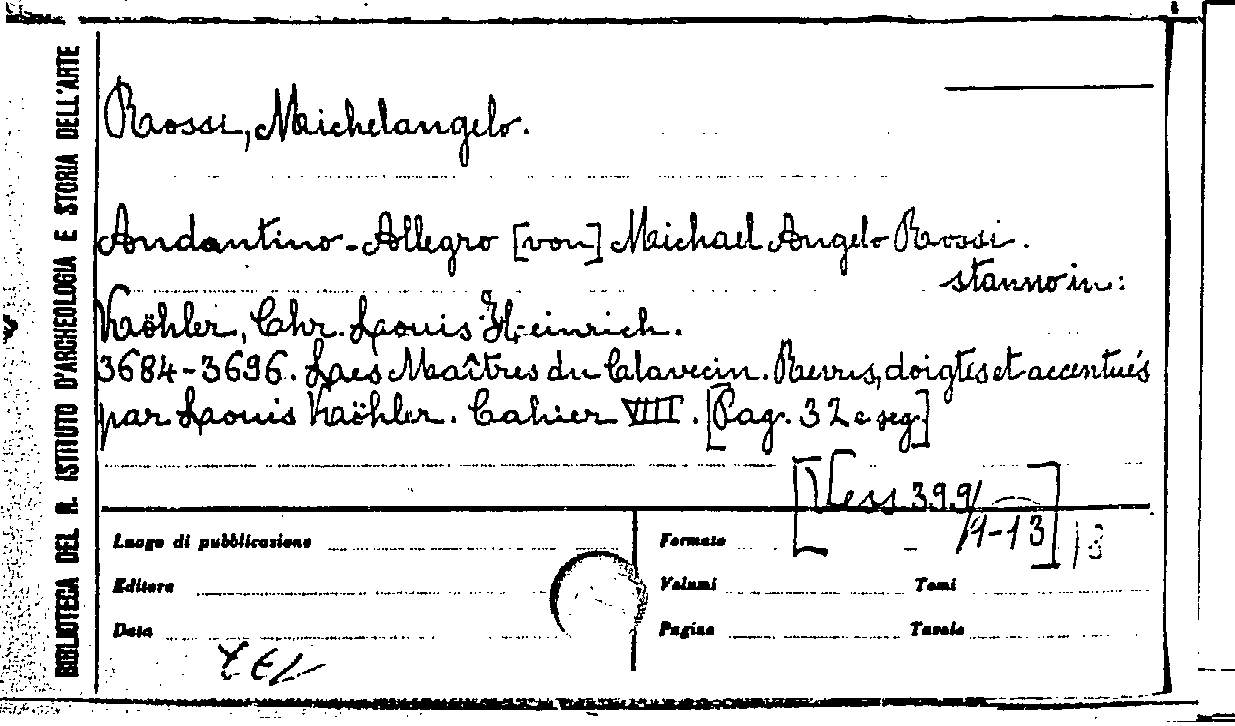 BIBLIOTECA DEL R. ISTITUTO D'ARCHEOLOGIA E STORIA DELL'ARTE
Rossi, Michelangelo.
Andantino-Allegro [von] Michael Angelo Rossi.
stanno in:
Köhler, Chr. Louis Heinrich.
3684-3696. Les Maîtres du Clavecin. Revus, doigtés et accentués
par Louis Köhler. Cahier VIII. [Pag. 32 e seg.]
[Vess 399/1-13] /3
Luogo di pubblicazione
Formato
Editore
Volumi
Tomi
Data
Pagine
Tavole